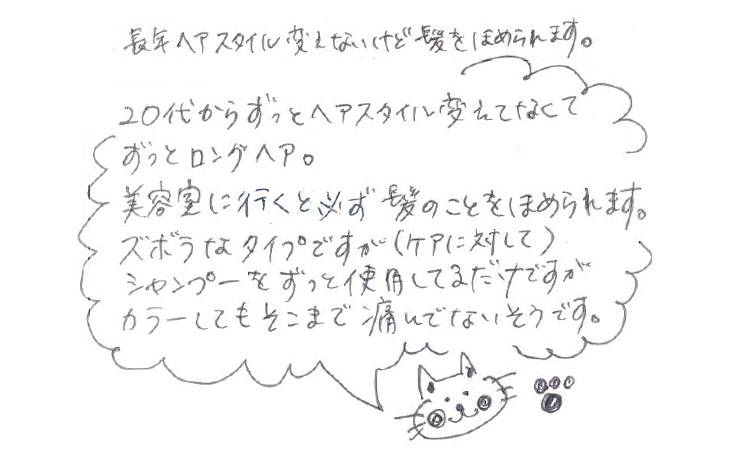 長年ヘアスタイル変えないけど髪をほめられます。
20代からずっとヘアスタイル変えてなくて
ずっとロングヘア。
美容室に行くと必ず髪のことをほめられます。
ズボラなタイプですが(ケアに対して)
シャンプーをずっと使用してるだけですが
カラーしてもそこまで痛んでないそうです。